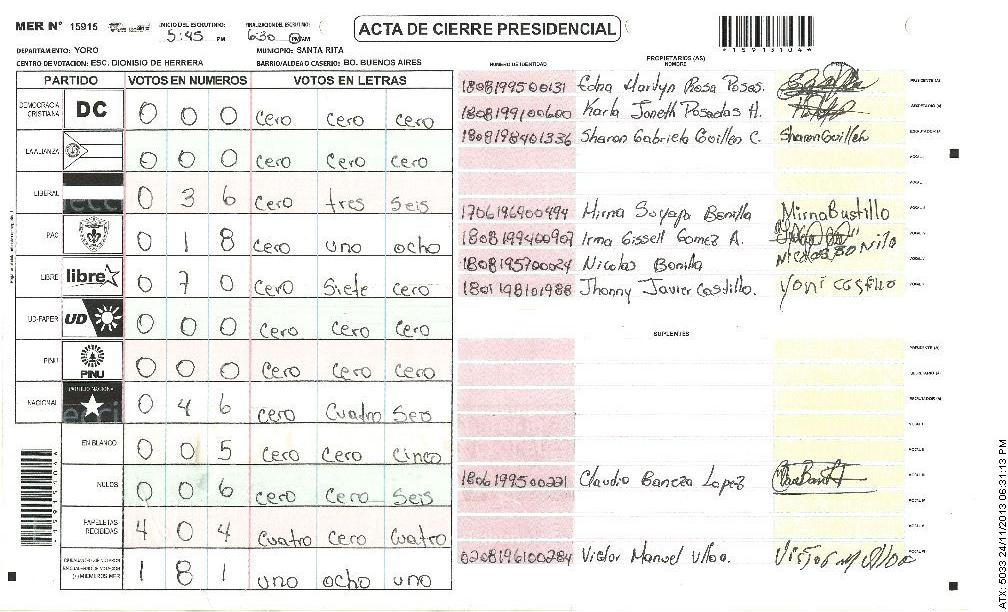 MER N° 15915
INICIO DEL ESCRUTINIO: 5:45 PM
FINALIZACION DEL ESCRUTINIO: 6:30 PM AM
ACTA DE CIERRE PRESIDENCIAL
DEPARTAMENTO: YORO
MUNICIPIO: SANTA RITA
CENTRO DE VOTACION: ESC. DIONISIO DE HERRERA
BARRIO/ALDEA O CASERIO: BO. BUENOS AIRES
PARTIDO VOTOS EN NUMEROS VOTOS EN LETRAS
DEMOCRACIA CRISTIANA DC 0 0 0 cero cero cero
LA ALIANZA 0 0 0 cero cero cero
LIBERAL 0 3 6 cero tres seis
PAC 0 1 8 cero uno ocho
LIBRE libre 0 7 0 cero siete cero
UD-FAPER UD 0 0 0 cero cero cero
PINU PINU 0 0 0 cero cero cero
NACIONAL PARTIDO NACIONAL 0 4 6 cero cuatro seis
EN BLANCO 0 0 5 cero cero cinco
NULOS 0 0 6 cero cero seis
PAPELETAS RECIBIDAS 4 0 4 cuatro cero cuatro
(+) MIEMBROS MER 1 8 1 uno ocho uno
NUMERO DE IDENTIDAD
PROPIETARIOS (AS)
NOMBRE
1808199500131 Edna Marilyn Rosa Posas. PRESIDENTE (A)
1808199100600 Karla Janeth Posadas H. SECRETARIO (A)
1808198401336 Sharon Gabriela Guillen C. Sharon Guillen ESCRUTADOR (A)
1706196900494 Mirna Suyapa Bonilla Mirna Bustillo
1808199400907 Irma Gissell Gomez A.
1808195700024 Nicolas Bonilla Nicolas Bonilla
1801198101988 Jhonny Javier Castillo. yoni castillo
SUPLENTES
PRESIDENTE (A)
SECRETARIO (A)
ESCRUTADOR (A)
1806199500221 Claudio Lopez
0208196100284 Victor Manuel Ulloa. Victor M Ulloa
159151044
ATX: 5033 24/11/2013 06:31:13 PM